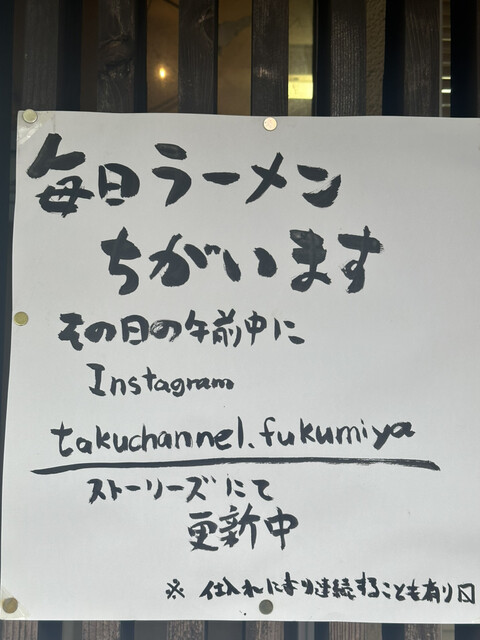 毎日ラーメン
ちがいます
その日の午前中に
Instagram
takuchannel.fukumiya
ストーリーズにて
更新中
※ 仕入れにより連続することも有り〼